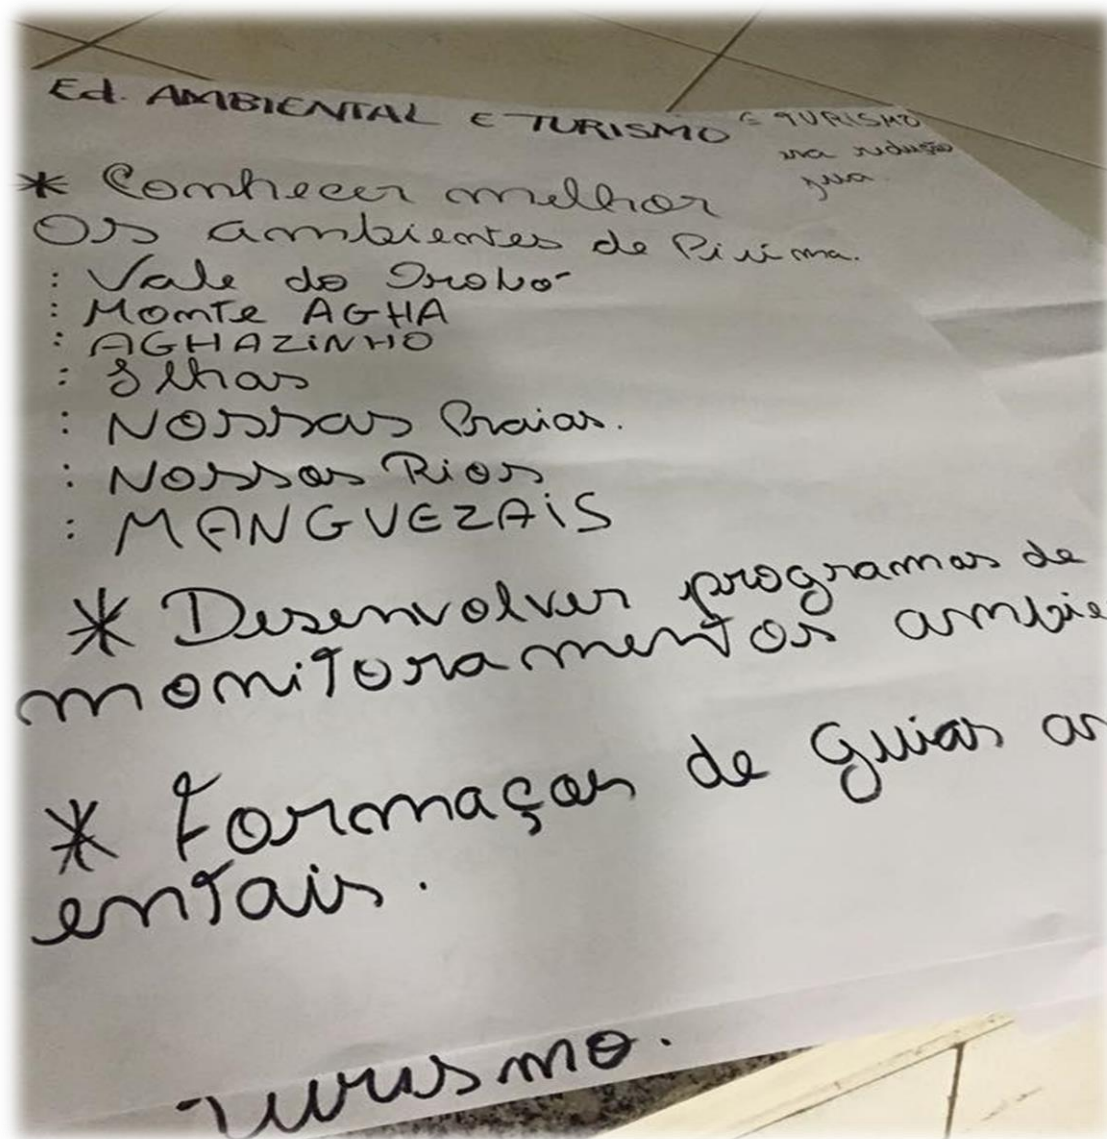 Ed. AMBIENTAL E TURISMO
E TURISMO
na redução
* Conhecer melhor
Os ambientes de Piúma.
: Vale do Orobó
: Monte AGHA
: AGHAZINHO
: Ilhas
: Nossas Praias.
: Nossos Rios
: MANGUEZAIS
* Desenvolver programas de
monitoramentos ambie
* Formaçao de guias am
entais.
Turismo.